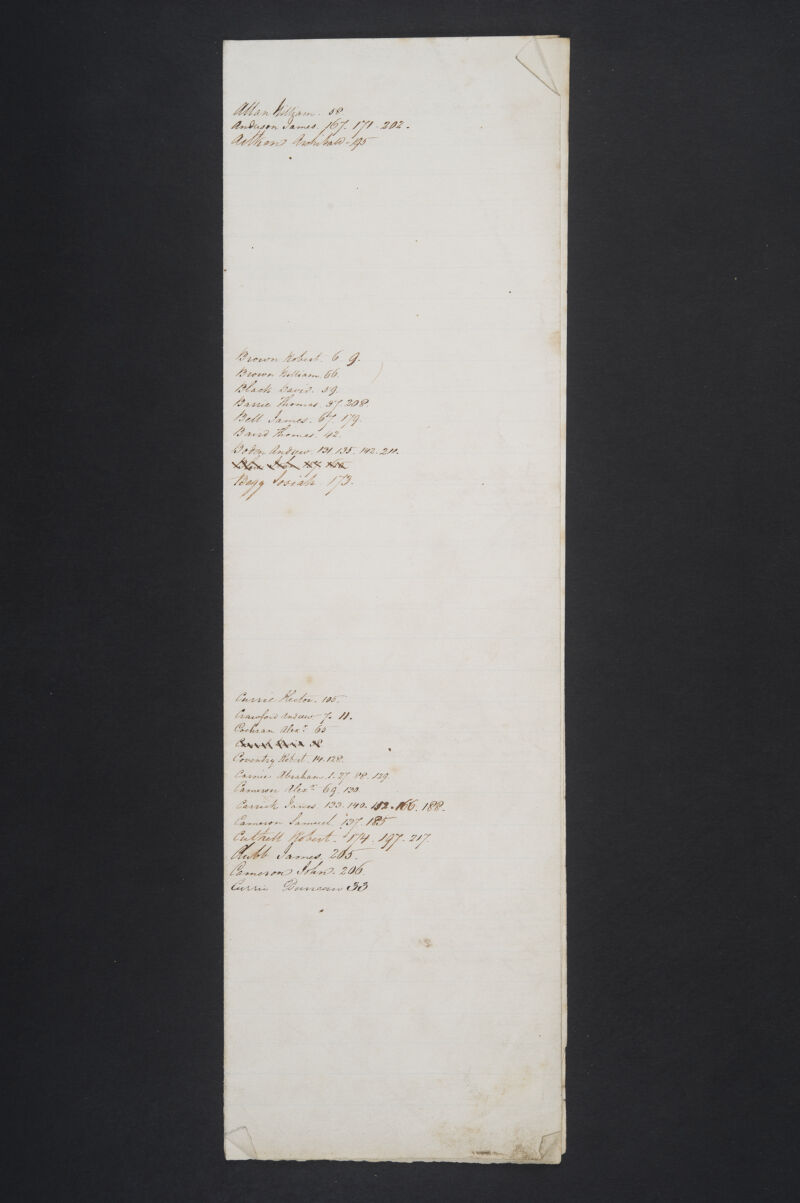 Allan William. 58
Anderson James. 167. 171. 202.
Archibald - 195
Brown Robert. 6 9.
Brown William. 66.
Black David. 59.
Barrie Thomas. 37. 208.
Bell James. 67. 179.
Baird Thomas. 42.
Boden Andrew. 131. 135. 142. 211.
Begg Josiah. 173.
Currie Hector. 105.
Crawford Andrew 7. 11.
Cochran Alexr. 63
Coventry Robert. 14. 128.
Abraham. 1. 27. 129.
Cameron Alexr. 69. 130.
Carrick James. 133. 140. 152. 166. 188.
Cameron Samuel. 137. 185
Cuthell Robert. 174. 197. 217.
Clubb James. 205.
Cameron John. 206.
Currie Duncan 33